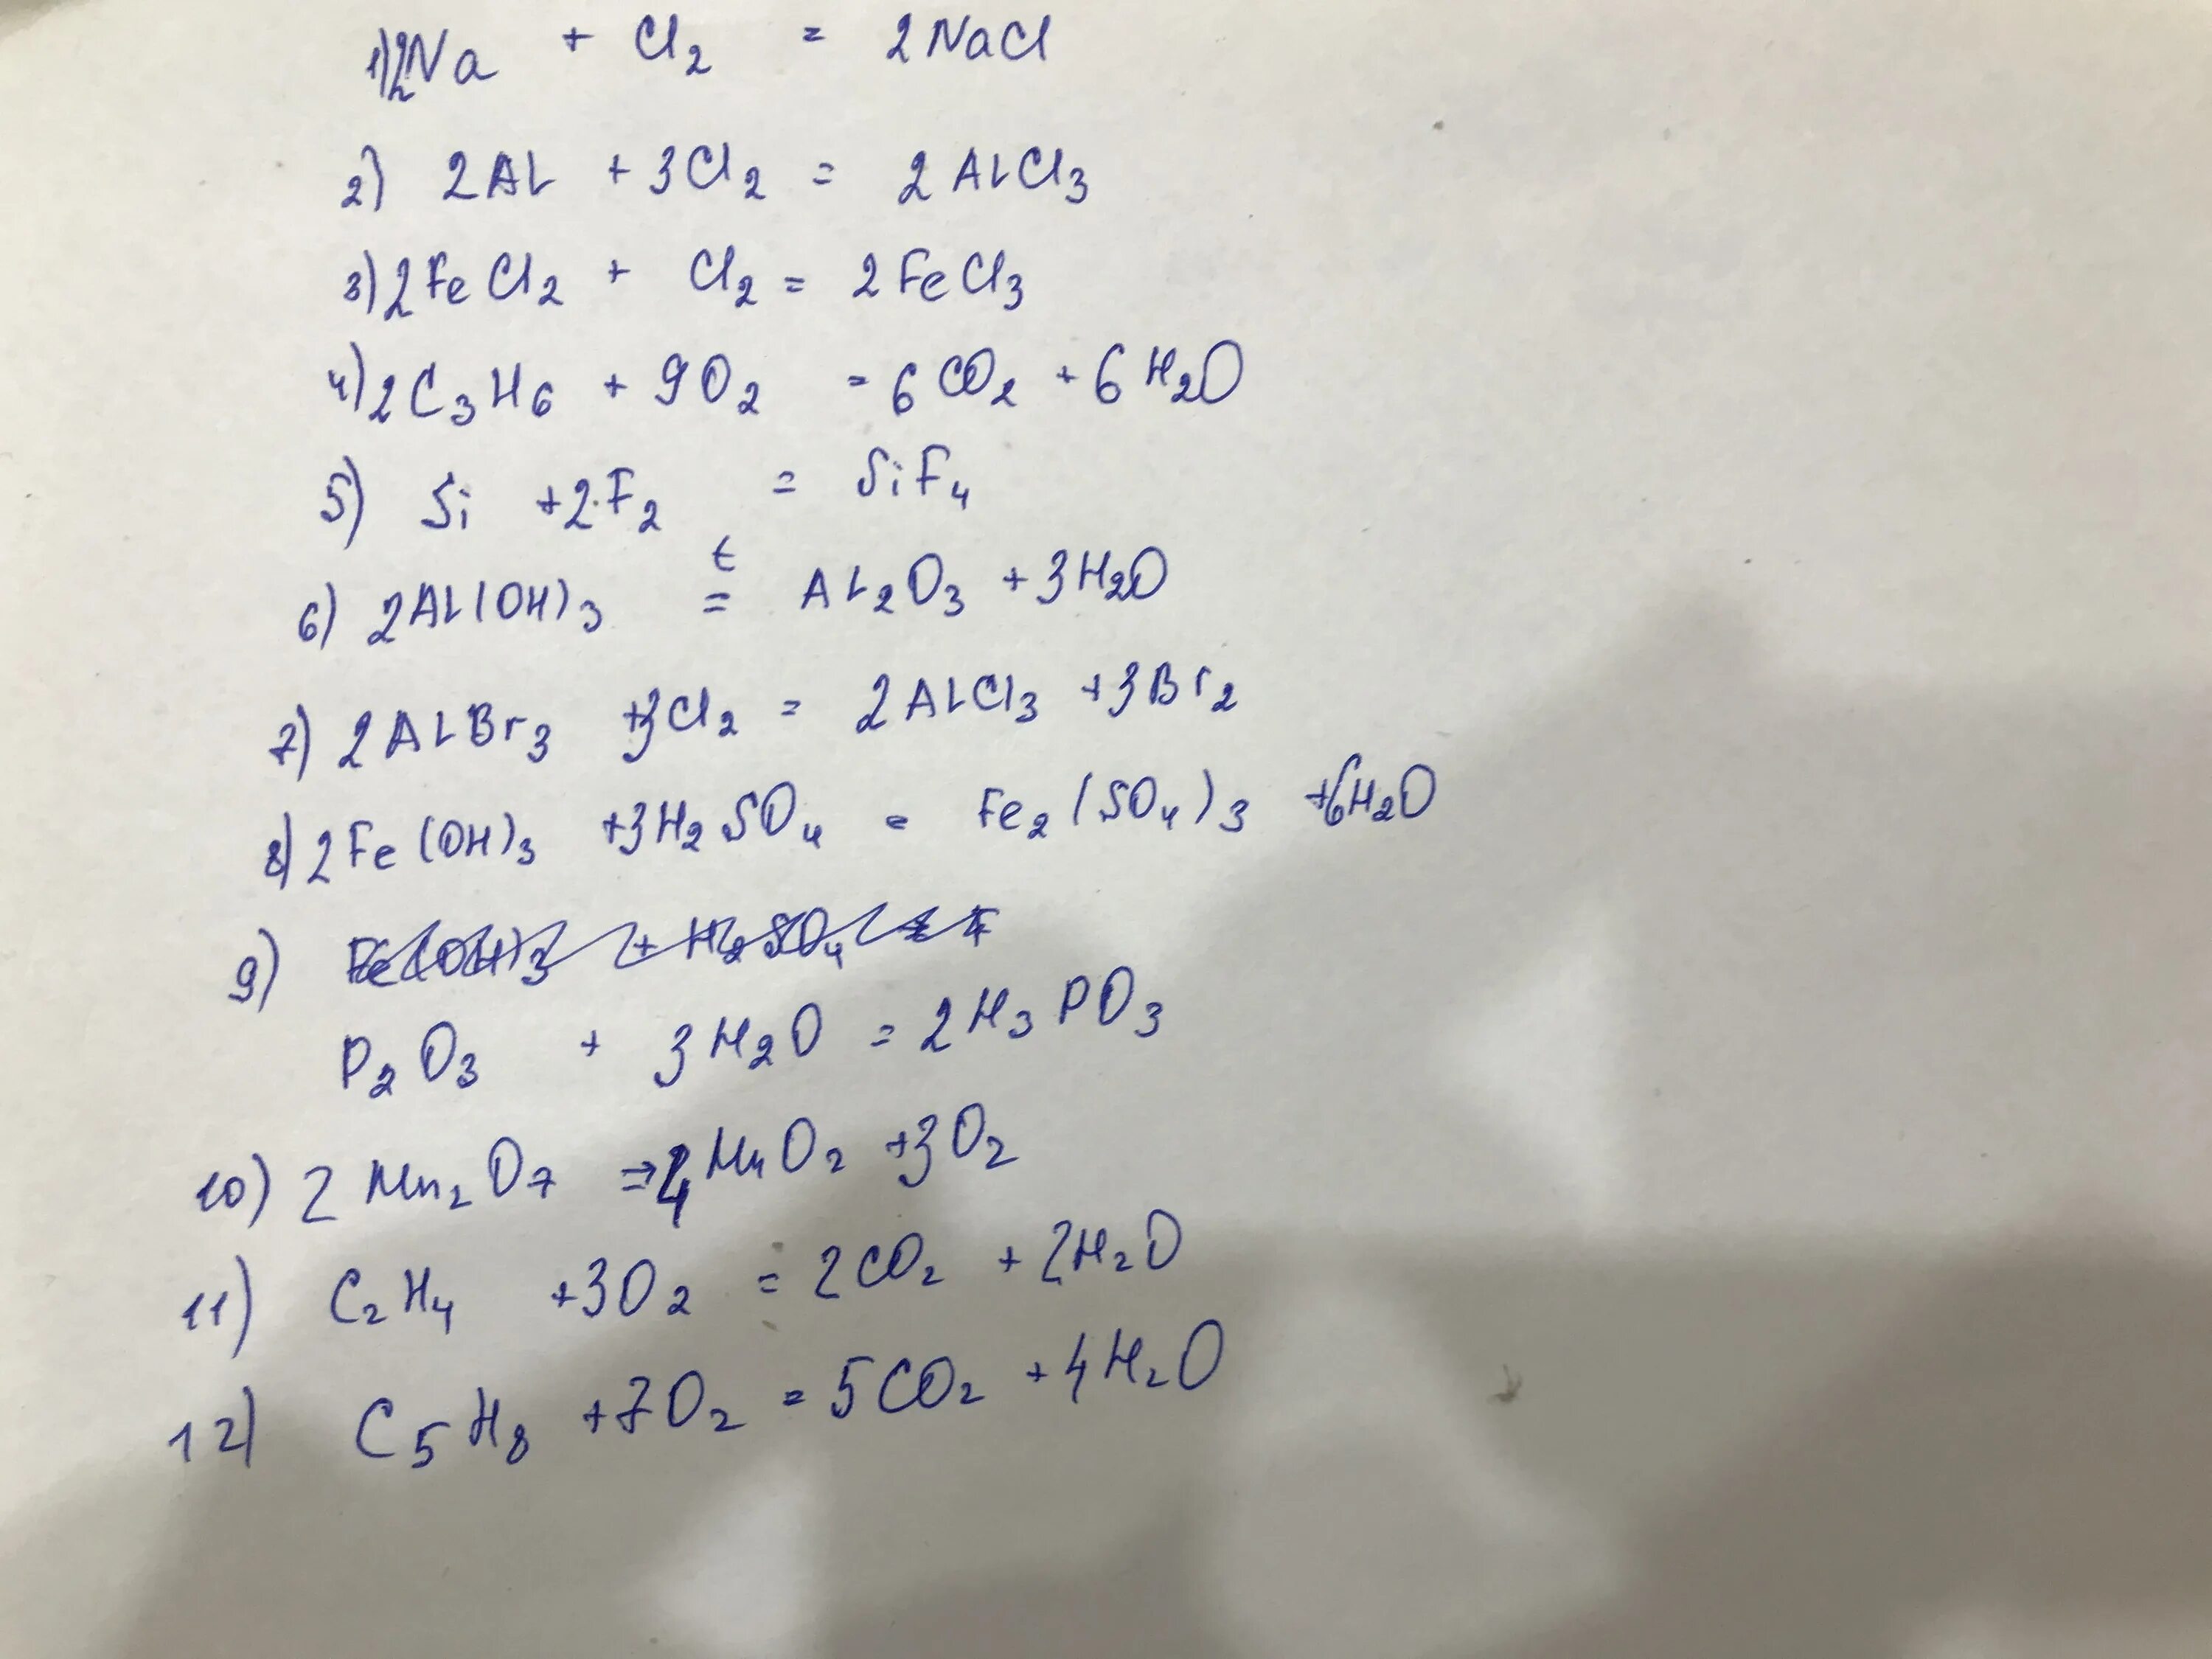 1) 2Na + Cl₂ = 2NaCl
2) 2Al + 3Cl₂ = 2AlCl₃
3) 2FeCl₂ + Cl₂ = 2FeCl₃
4) 2C₃H₆ + 9O₂ = 6CO₂ + 6H₂O
5) Si + 2F₂ = SiF₄
6) 2Al(OH)₃ t= Al₂O₃ + 3H₂O
7) 2AlBr₃ + 3Cl₂ = 2AlCl₃ + 3Br₂
8) 2Fe(OH)₃ + 3H₂SO₄ = Fe₂(SO₄)₃ + 6H₂O
9) Fe(OH)₃ + H₂SO₄ = F
P₂O₃ + 3H₂O = 2H₃PO₃
10) 2Mn₂O₇ ⇒ 4MnO₂ + 3O₂
11) C₂H₄ + 3O₂ = 2CO₂ + 2H₂O
12) C₅H₈ + 7O₂ = 5CO₂ + 4H₂O